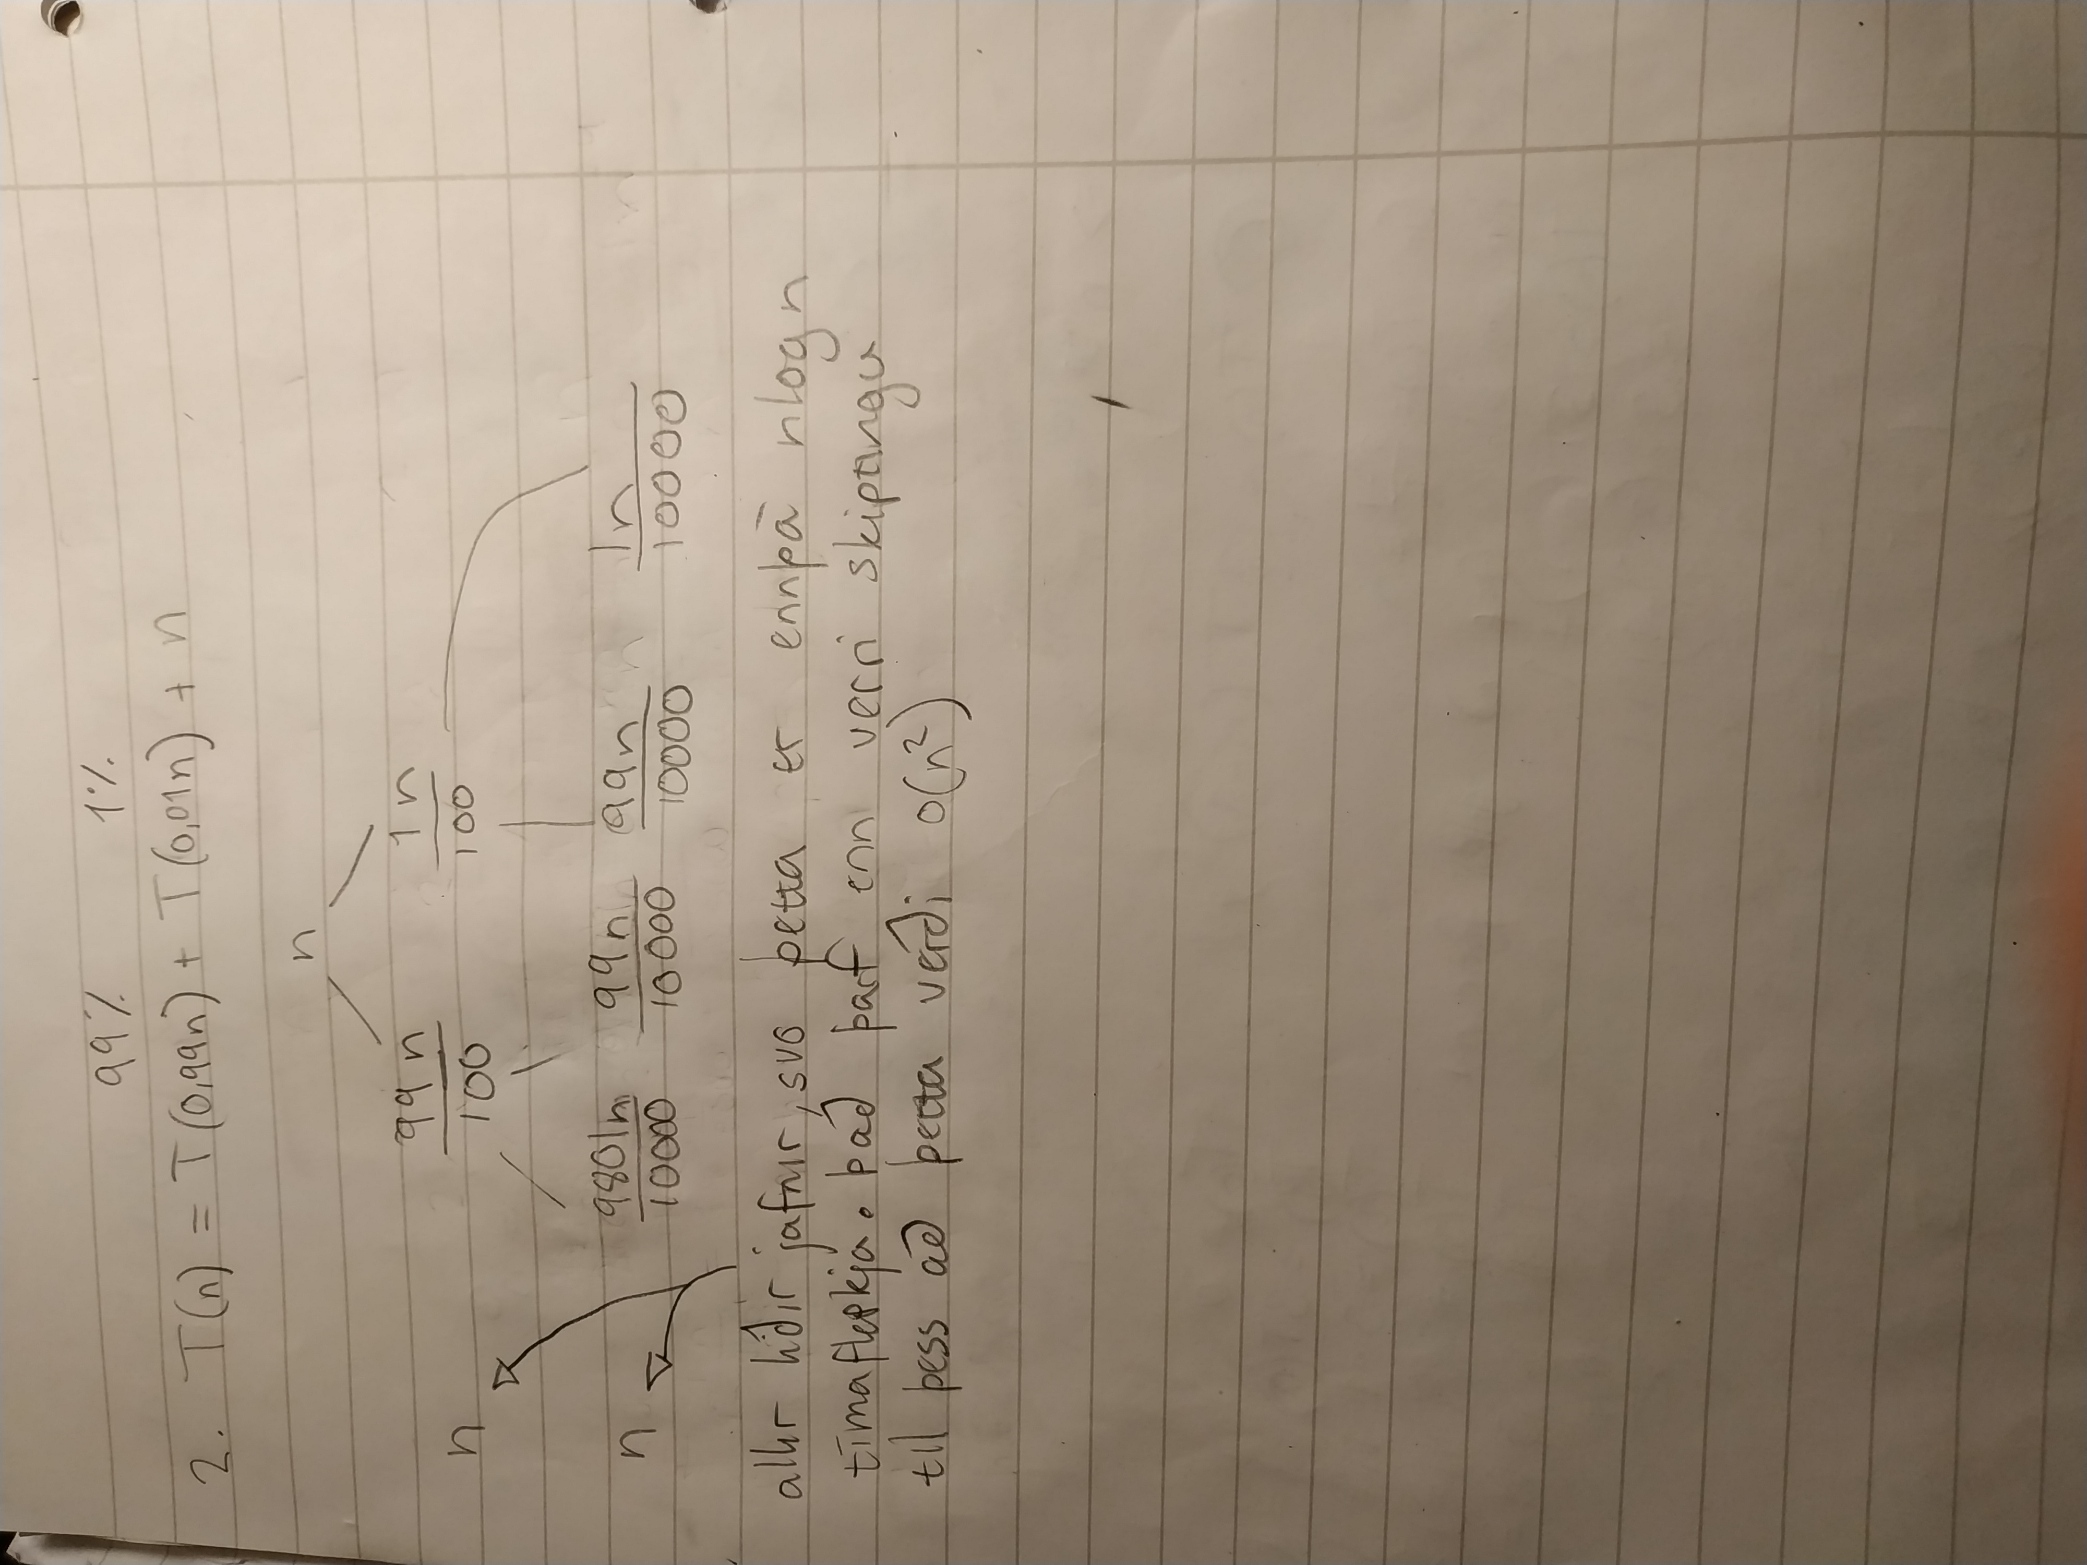 99% 1%
2. T(n) = T(0,99n) + T(0,01n) + n
n
99n/100 1n/100
n
9801n/10000 99n/10000 99n/10000 1n/10000
n
allir liðir jafnir, svo þetta er ennþá nlogn
tímaflækja. það þarf enn verri skiptingu
til þess að þetta verði O(n²)